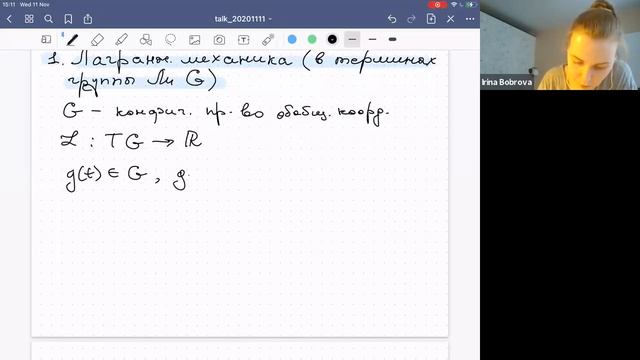 15:11 Wed 11 Nov
talk_20201111
1. Лагранж. механика (в терминах
группы Ли G)
G – конфиг. пр-во обобщ. коорд.
L : TG → ℝ
g(t) ∈ G , g
Irina Bobrova